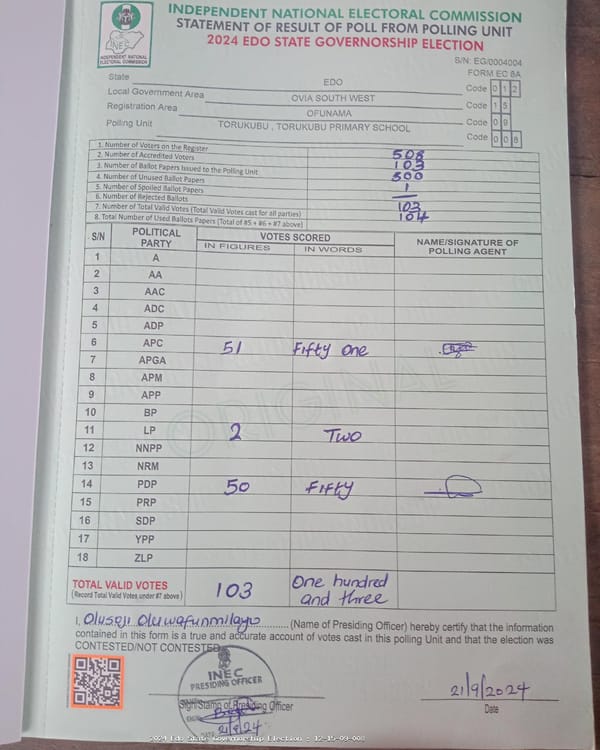 INDEPENDENT NATIONAL ELECTORAL COMMISSION
STATEMENT OF RESULT OF POLL FROM POLLING UNIT
2024 EDO STATE GOVERNORSHIP ELECTION
INEC
INDEPENDENT NATIONAL ELECTORAL COMMISSION
S/N: EG/0004004
FORM EC 8A
State EDO Code 0 1 2
Local Government Area OVIA SOUTH WEST Code 1 5
Registration Area OFUNAMA Code 0 9
Polling Unit TORUKUBU , TORUKUBU PRIMARY SCHOOL Code 0 0 8
1. Number of Voters on the Register 508
2. Number of Accredited Voters 103
3. Number of Ballot Papers Issued to the Polling Unit 500
4. Number of Unused Ballot Papers
5. Number of Spoiled Ballot Papers 1
6. Number of Rejected Ballots —
7. Number of Total Valid Votes (Total Valid Votes cast for all parties) 103
8. Total Number of Used Ballots Papers (Total of #5 + #6 + #7 above) 104
S/N POLITICAL PARTY VOTES SCORED NAME/SIGNATURE OF POLLING AGENT
IN FIGURES IN WORDS
1 A
2 AA
3 AAC
4 ADC
5 ADP
6 APC 51 Fifty One
7 APGA
8 APM
9 APP
10 BP
11 LP 2 Two
12 NNPP
13 NRM
14 PDP 50 Fifty
15 PRP
16 SDP
17 YPP
18 ZLP
ORIGINAL
TOTAL VALID VOTES 103 One hundred
(Record Total Valid Votes, under #7 above) and three
I, Oluseji Oluwafunmilayo (Name of Presiding Officer) hereby certify that the information
contained in this form is a true and accurate account of votes cast in this polling Unit and that the election was
CONTESTED/NOT CONTESTED
INEC
PRESIDING OFFICER
Sign/Stamp of Presiding Officer
21/9/24
21/9/2024
Date
2024 Edo State Governorship Election - 12-15-09-008